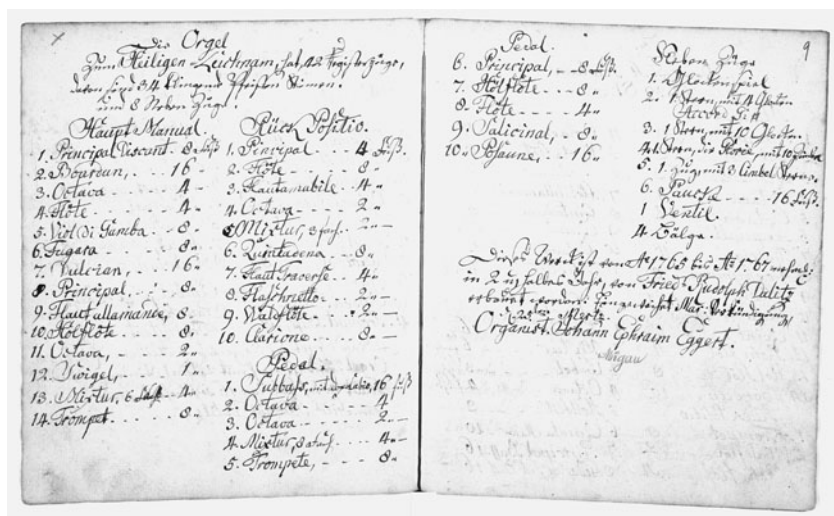 Die Orgel
Zum Heiligen Leichnam, hat 42 Registerzüge,
davon sind 34 klingende Pfeifen Stimen.
und 8 Neben Züge.
Haupt Manual.
1. Principal Discant 8 Fuß
2. Bourdun, 16 "
3. Octava 4 "
4. Flöte 4 "
5. Viol di Gamba 8 "
6. Fugara 8 "
7. Dulcian, 16 "
8. Principal 8 "
9. Flaut allamande, 8 "
10. Holflöte 8 "
11. Octava, 2 "
12. 1 "
13. Mixtur, 6 fach 4 "
14. Trompet 8 "
Rück Positio.
1. Principal 4 Fuß.
2. Flöte 8 "
3. Flautamabile 4 "
4. Octava 2 "
5. Mixtur, 3 fach. 2 "
6. Quintadena 8 "
7. Flaut Traverse 4 "
8. Flaschnetto 2 "
9. Waldflöte 2 "
10. Clarione 8 "
Pedal.
1. Subbass, 16 fuß
2. Octava 4
3. Octava 2 "
4. Mixtur, 8 fach 4 "
5. Trompete, 8 "
Pedal.
6. Principal, 8 Fuß.
7. Holflöte 8 "
8. Flöte 4 "
9. Salicinal, 8 "
10. Posaune, 16 "
9
Neben Züge
1. Glockenspiel
2. 1 Stern, mit 4 Glocken
Accord G
3. 1 Stern, mit 10 Glocken
4. 1 Stern, mit 10
5. 1 Zug, mit 3 Cimbel Sterne
6. Paucke 16 Fuß.
1 Ventil.
4 Bälge.
Dieses Werck ist von Aō 1765 bis Aō 1767
in 2 und halbes Jahr, von Fried: Rudolph Dalitz
erbauet worden. Eingeweihet Mar: Verkündigung
Organist. Johann Ephraim Eggert.